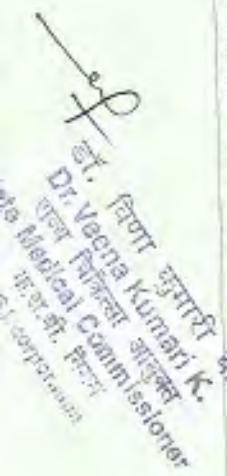 डॉ. विणा कुमारी
Dr. Veena Kumari K.
राज्य चिकित्सा आयुक्त
Medical Commissioner
निगम